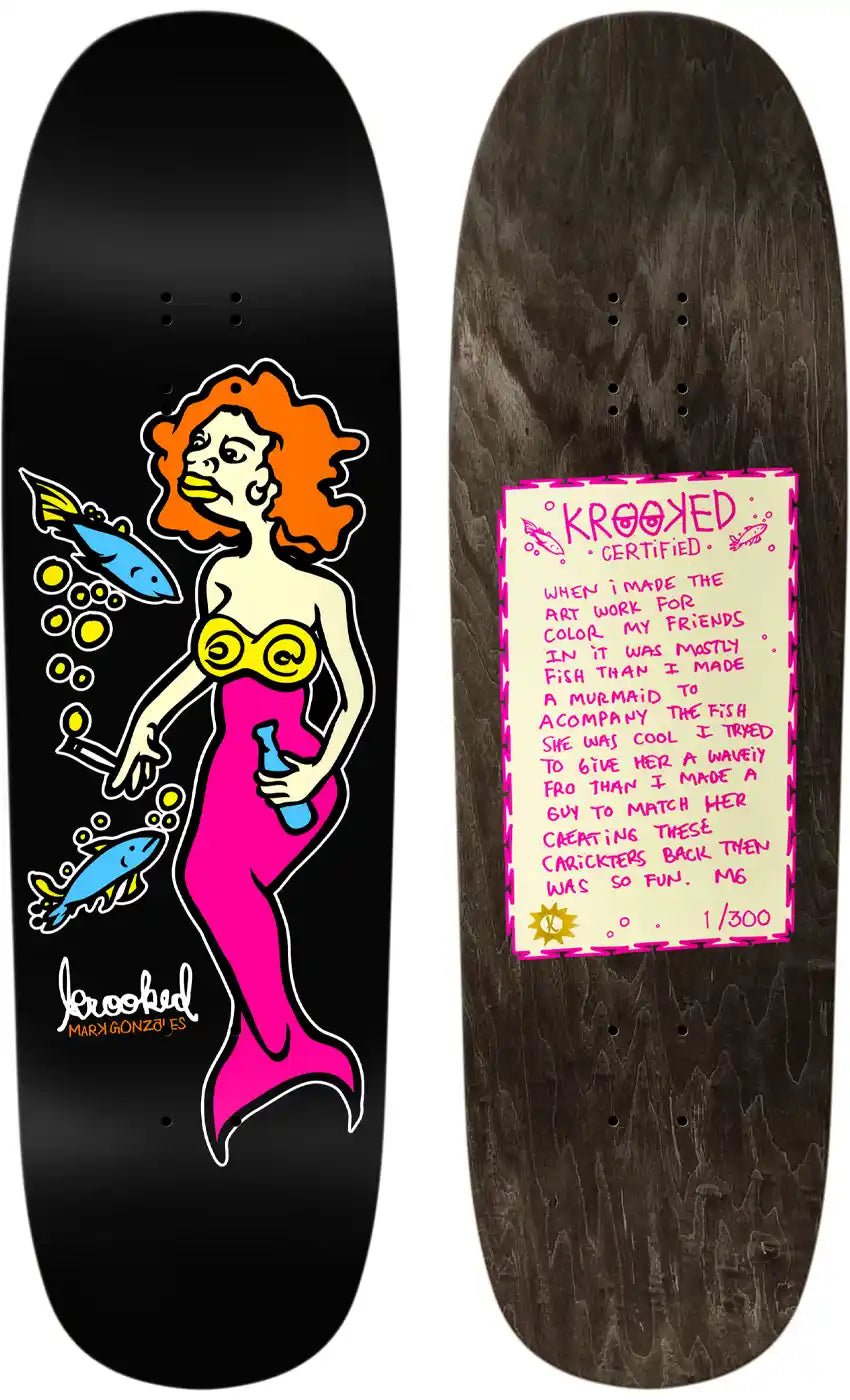 krooked
MARK GONZALES
KROOKED
· CERTiFiED ·
WHEN i MADE THE
ART WORK FOR
COLOR MY FRiENDS
IN iT WAS MOSTLY
FiSH THAN I MADE
A MURMAiD TO
ACOMPANY THE FiSH
SHE WAS COOL I TRYED
TO GiVE HER A WAVEiY
FRO THAN I MADE A
GUY TO MATCH HER
CREATiNG THESE
CARiCKTERS BACK THEN
WAS SO FUN. MG
K
1/300